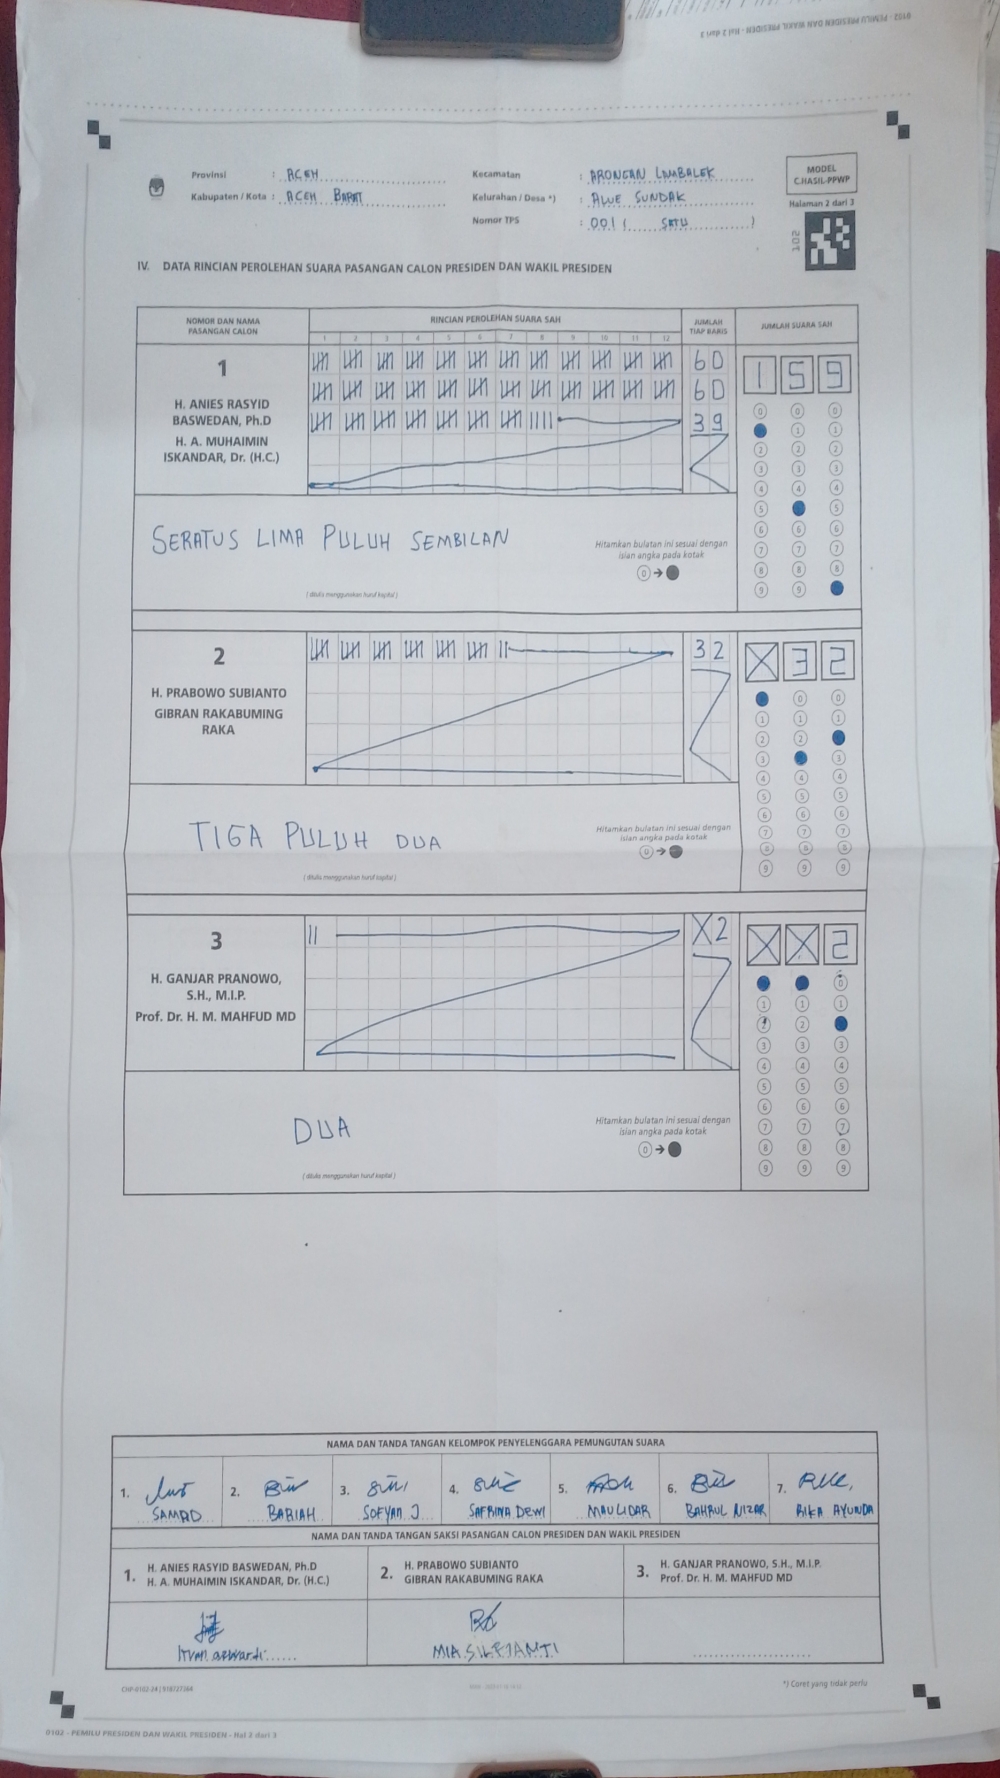 0102 - PEMILU PRESIDEN DAN WAKIL PRESIDEN - Hal 2 dari 3
Provinsi : ACEH
Kabupaten / Kota : ACEH BARAT
Kecamatan : ARONGAN LAMBALEK
Kelurahan / Desa *) : ALUE SUNDAK
Nomor TPS : 001 ( SATU )
MODEL
C.HASIL-PPWP
Halaman 2 dari 3
102
IV. DATA RINCIAN PEROLEHAN SUARA PASANGAN CALON PRESIDEN DAN WAKIL PRESIDEN
NOMOR DAN NAMA
PASANGAN CALON
RINCIAN PEROLEHAN SUARA SAH
1 2 3 4 5 6 7 8 9 10 11 12
JUMLAH
TIAP BARIS
JUMLAH SUARA SAH
1
H. ANIES RASYID
BASWEDAN, Ph.D
H. A. MUHAIMIN
ISKANDAR, Dr. (H.C.)
60
60
39
1 5 9
SERATUS LIMA PULUH SEMBILAN
( ditulis menggunakan huruf kapital )
Hitamkan bulatan ini sesuai dengan
isian angka pada kotak
2
H. PRABOWO SUBIANTO
GIBRAN RAKABUMING
RAKA
32
X 3 2
TIGA PULUH DUA
( ditulis menggunakan huruf kapital )
Hitamkan bulatan ini sesuai dengan
isian angka pada kotak
3
H. GANJAR PRANOWO,
S.H., M.I.P.
Prof. Dr. H. M. MAHFUD MD
X2
X X 2
DUA
( ditulis menggunakan huruf kapital )
Hitamkan bulatan ini sesuai dengan
isian angka pada kotak
NAMA DAN TANDA TANGAN KELOMPOK PENYELENGGARA PEMUNGUTAN SUARA
1. SAMAD
2. BABIAH
3. SOFYAN J
4. SAFRINA DEWI
5. MAULIDAR
6. BAHRUL NIZAR
7. RIKA AYUNDA
NAMA DAN TANDA TANGAN SAKSI PASANGAN CALON PRESIDEN DAN WAKIL PRESIDEN
1. H. ANIES RASYID BASWEDAN, Ph.D
H. A. MUHAIMIN ISKANDAR, Dr. (H.C.)
2. H. PRABOWO SUBIANTO
GIBRAN RAKABUMING RAKA
3. H. GANJAR PRANOWO, S.H., M.I.P.
Prof. Dr. H. M. MAHFUD MD
Irvan azwardi
MIA
*) Coret yang tidak perlu
0102 - PEMILU PRESIDEN DAN WAKIL PRESIDEN - Hal 2 dari 3